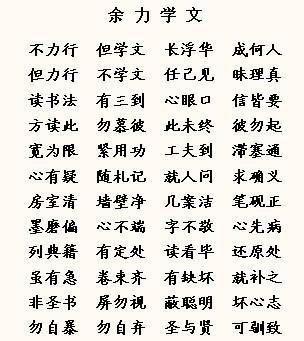 余力学文
不力行 但学文 长浮华 成何人
但力行 不学文 任己见 昧理真
读书法 有三到 心眼口 信皆要
方读此 勿慕彼 此未终 彼勿起
宽为限 紧用功 工夫到 滞塞通
心有疑 随札记 就人问 求确义
房室清 墙壁净 几案洁 笔砚正
墨磨偏 心不端 字不敬 心先病
列典籍 有定处 读看毕 还原处
虽有急 卷束齐 有缺坏 就补之
非圣书 屏勿视 蔽聪明 坏心志
勿自暴 勿自弃 圣与贤 可驯致